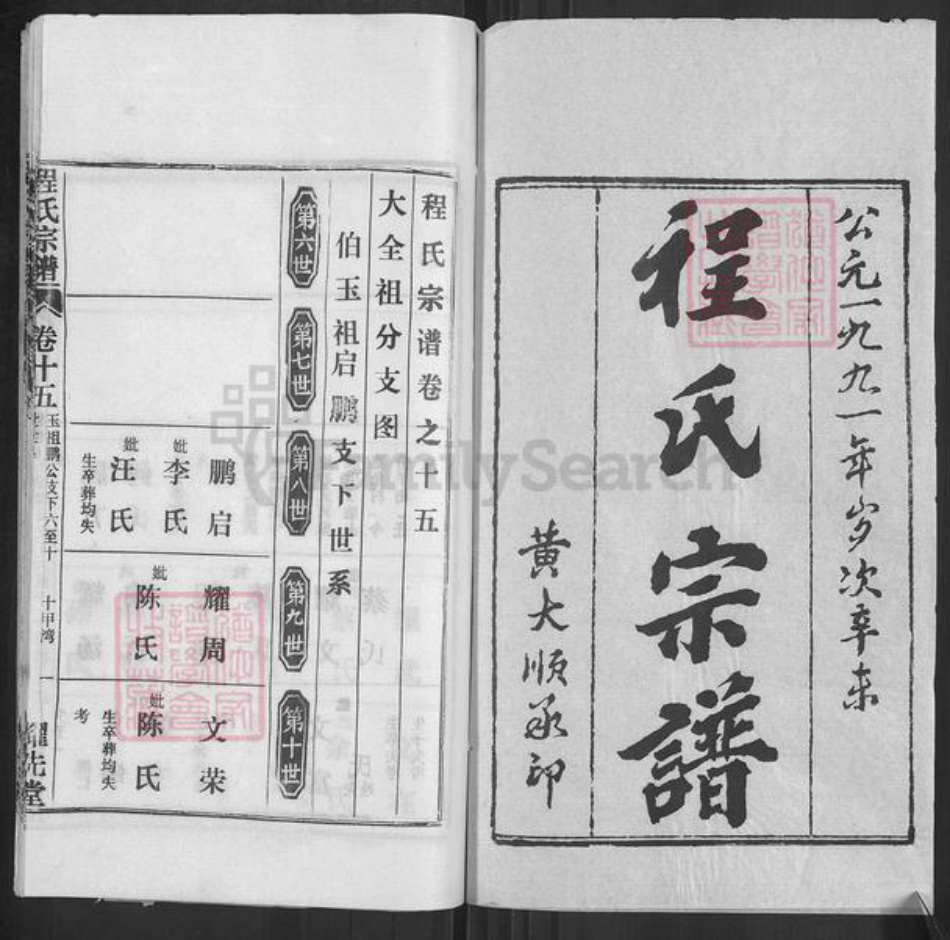 公元一九九一年岁次辛未
程氏宗譜
黄大顺承印
程氏宗谱卷之十五
大全祖分支图
伯玉祖启鹏支下世系
第六世
第七世
第八世
第九世
第十世
鹏启
妣李氏
妣汪氏
生卒葬均失
耀周
妣陈氏
文荣
妣陈氏
生卒葬均失
考
程氏宗譜
卷十五
玉祖鹏公支下六至十
十甲湾
一
先堂
FamilySearch